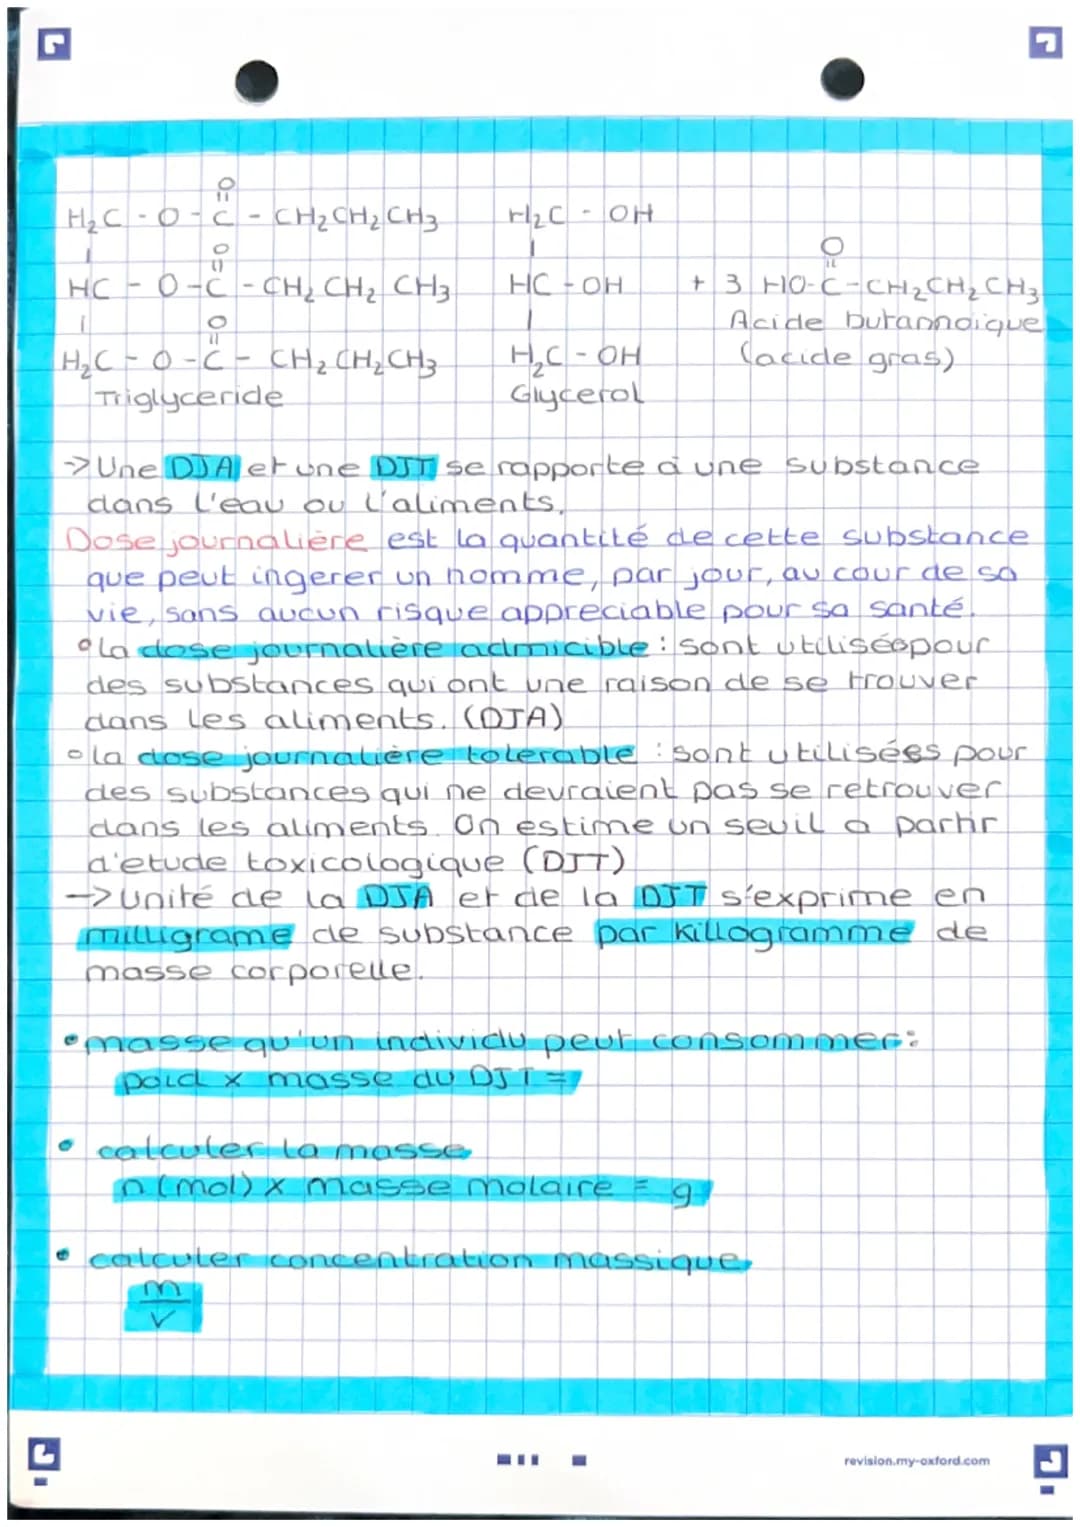 O
H₂C - O - C - CH₂CH₂CH₃ H₂C - OH
O O
HC - O - C - CH₂ CH₂ CH₃ HC - OH + 3 HO-C-CH₂CH₂CH₃
O Acide butannoïque
H₂C - O - C - CH₂CH₂CH₃ H₂C - OH (acide gras)
Triglyceride Glycerol
-> Une DJA et une DJT se rapporte à une substance
dans l'eau ou l'aliments.
Dose journalière est la quantité de cette substance
que peut ingerer un homme, par jour, au cour de sa
vie, sans aucun risque appreciable pour sa santé.
• la dose journalière admicible : sont utilisée pour
des substances qui ont une raison de se trouver
dans les aliments. (DJA)
• la dose journalière tolerable : sont utilisées pour
des substances qui ne devraient pas se retrouver
dans les aliments. On estime un seuil a partir
d'etude toxicologique (DJT)
-> Unité de la DJA et de la DJT s'exprime en
milligrame de substance par killogramme de
masse corporelle.
• masse qu'un individu peut consommer :
poid x masse du DJT =
• calculer la masse
n (mol) x masse molaire = g
• calculer concentration massique
m
V
revision.my-oxford.com